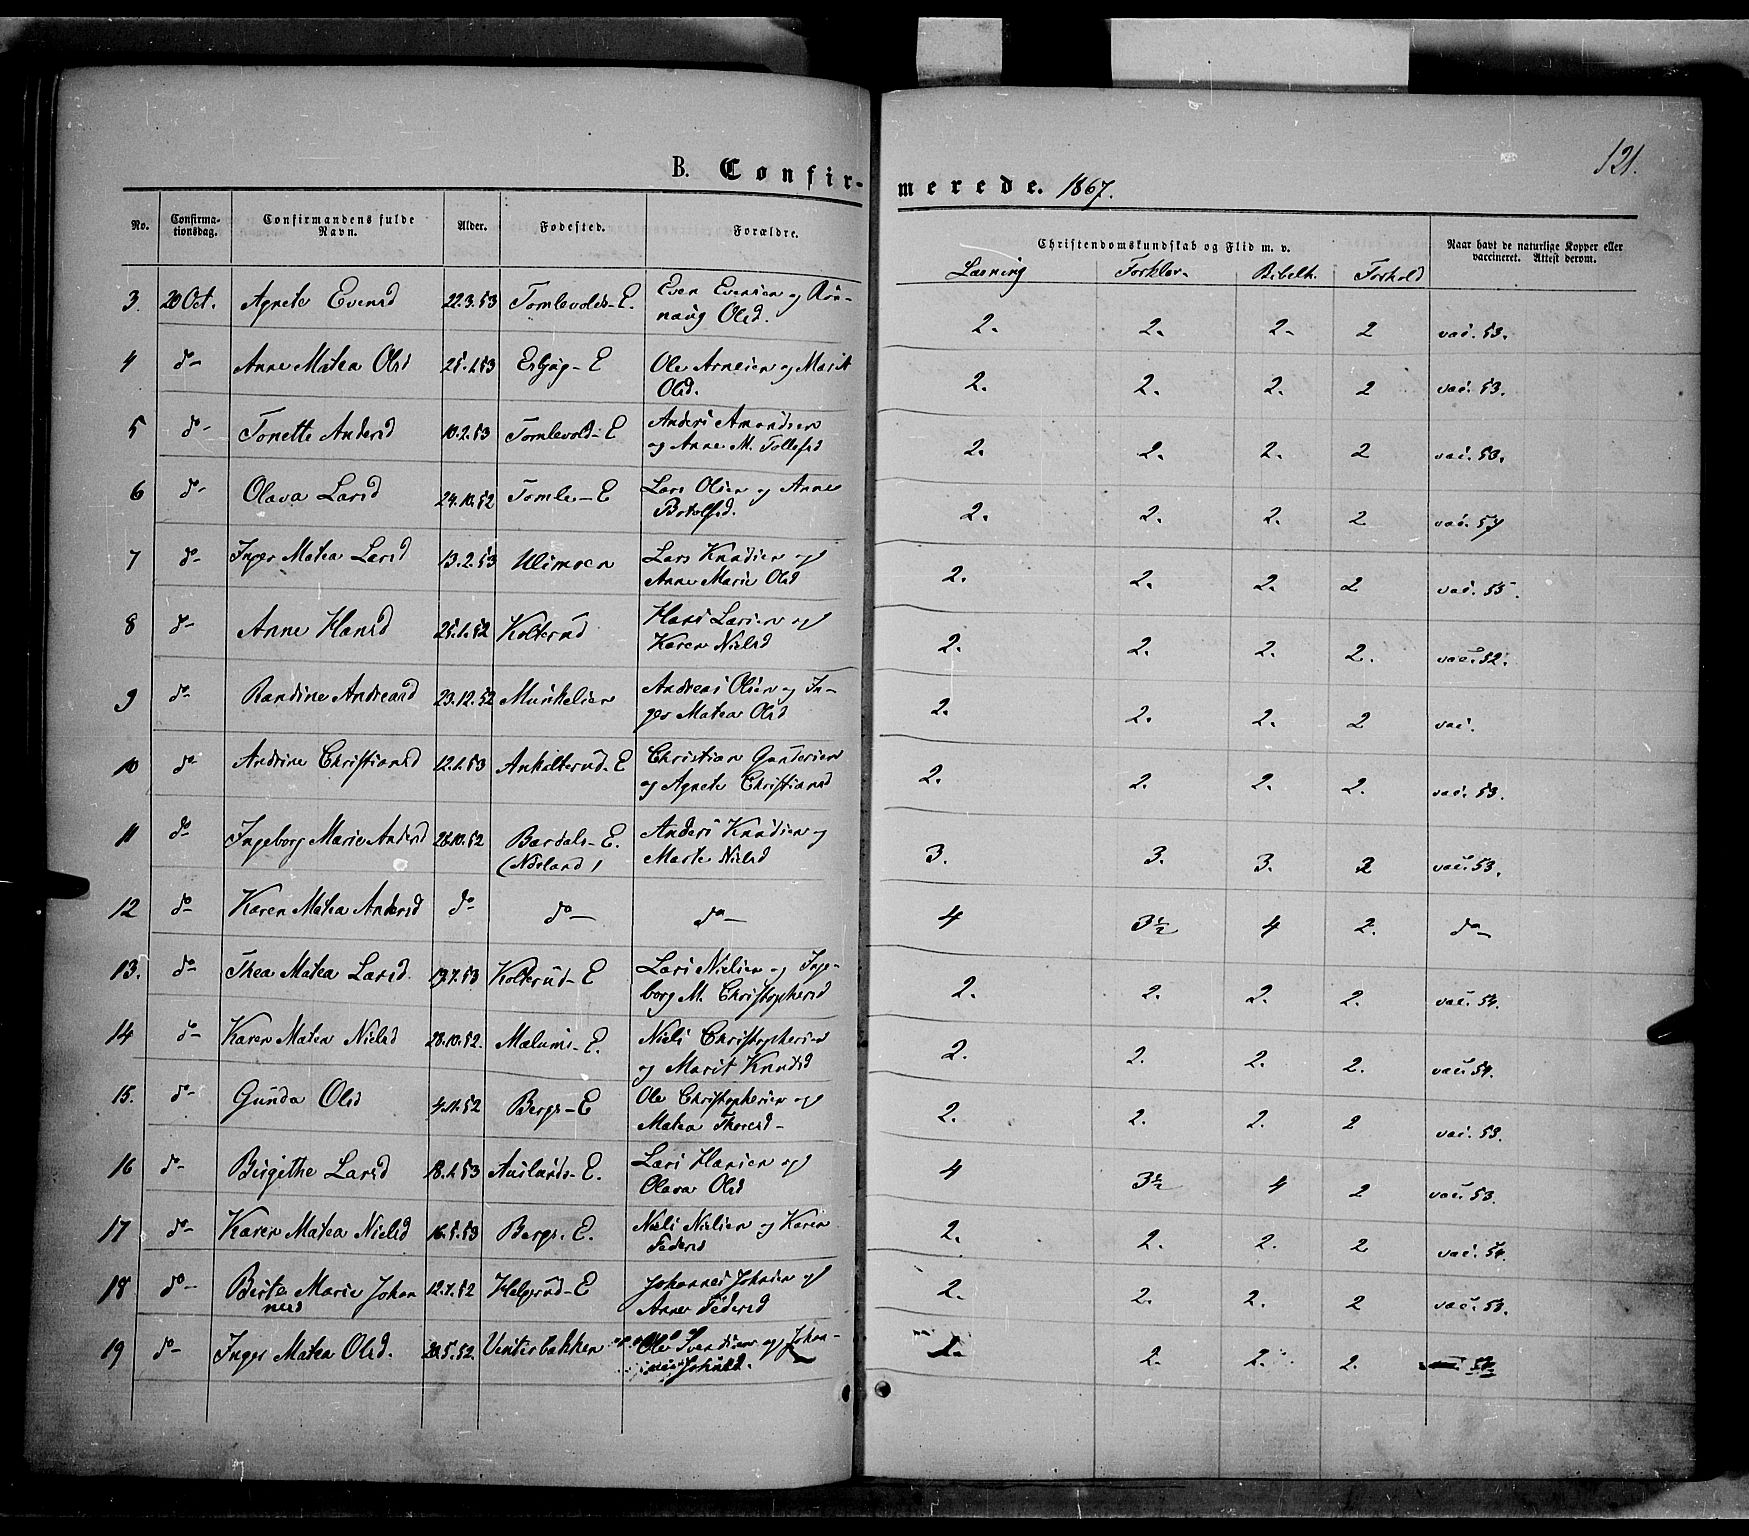 B. Confir-
merede. 1867.
121.
No.
Confirma-
tionsdag.
Confirmandens fulde
Navn.
Alder.
Fødested.
Forældre.
Christendomskundskab og Flid m. v.
Naar havt de naturlige Kopper eller
vaccineret. Attest derom.
Læsning Forklar. Bibelh. Forhold
3. 20 Oct. Agnete Evensd 22.3.53 Tomlevolds-E. Even Evensen og Rön-
naug Olsd. 2. 2. 2. 2 vac. 53.
4 do Anne Matea Olsd 25.1.53 E Ole Arnesen og Marit
Olsd. 2. 2. 2. 2 vac. 53.
5 do Tonette Andersd 10.2.53 Tomlevold-E Anders Amundsen
og Anne M. Tollefsd 2. 2. 2. 2 vac. 53.
6 do Olava Larsd 24.10.52 Tomle-E Lars Olsen og Anne
Botolfsd. 2. 2. 2. 2 vac. 57
7 do Inger Matea Larsd 13.2.53 Ulimoen Lars Knudsen og
Anne Marie Olsd 2. 2. 2. 2 vac. 55.
8 do Anne Hansd 25.1.52 Kolterud Hans Larsen og
Karen Nielsd 2. 2. 2. 2. vac. 52.
9 do Randine Andreasd 23.12.52 Munkelien Andreas Olsen og In-
ger Matea Olsd 2. 2. 2. 2 vac.
10 do Andrine Christiansd 12.1.53 Ankelterud-E Christian Gundersen
og Agnete Christiansd 2. 2. 2. 2. vac. 53.
11 do Ingeborg Marie Andersd 26.10.52 Bardals-E. Anders Knudsen og
(Ndrland) Marte Nielsd 3. 3. 3. 2 vac. 53.
12 do Karen Matea Andersd do do do 4 3½ 4 2. do
13. do Thea Matea Larsd 19.7.53 Kolterud-E Lars Nielsen og Inge-
borg M. Christophersd 2. 2. 2. 2. vac. 54.
14 do Karen Matea Nielsd 28.10.52. Mælums-E. Niels Christophersen
og Marit Knudsd 2. 2. 2. 2. vac. 54.
15. do Gunda Olsd 4.11.52 Bergs-E Ole Christophersen og
Matea Thoresd 2. 2. 2. 2 vac. 53.
16 do Birgithe Larsd 18.1.53 Auslands-E. Lars Hansen og
Olava Olsd 4 3½ 4 2 vac. 53.
17 do Karen Matea Nielsd 16.5.53 Bergs-E. Niels Nielsen og Karen
Pedersd 2. 2. 2. 2 vac. 54.
18 do Berte Marie Johan 12.7.52 Helgerud-E Johannes Johnsen og
nesd Anne Pedersd 2. 2. 2. 2 vac. 53.
19 do Inger Matea Olsd. 20.5.52. Vinterbakken Ole Svendsen og Johan-
2. 2. 2. 2.